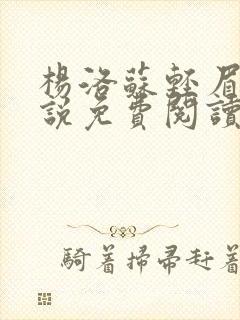 楊洛蘇輕眉
說免費閱讀
騎着掃帚赶着